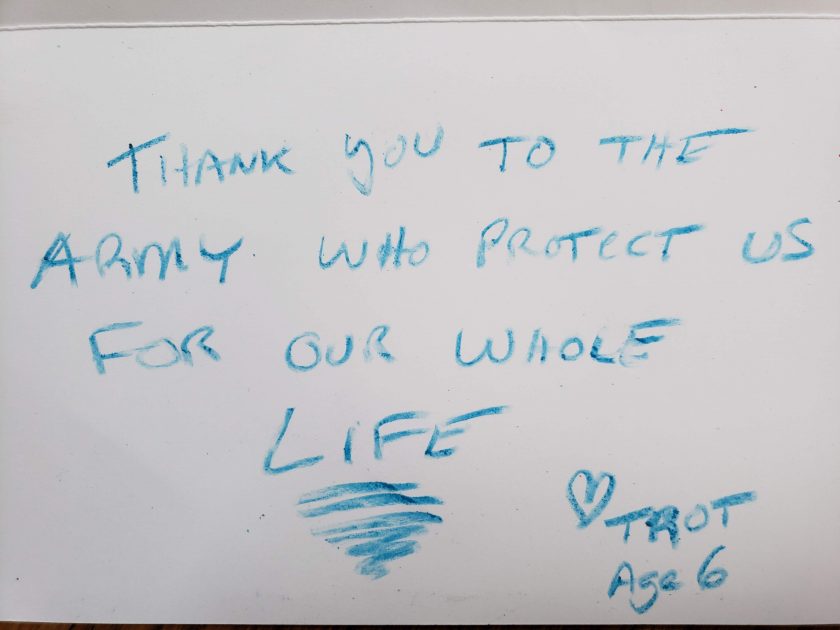 THANK YOU TO THE
ARMY WHO PROTECT US
FOR OUR WHOLE
LIFE
TROT
Age 6